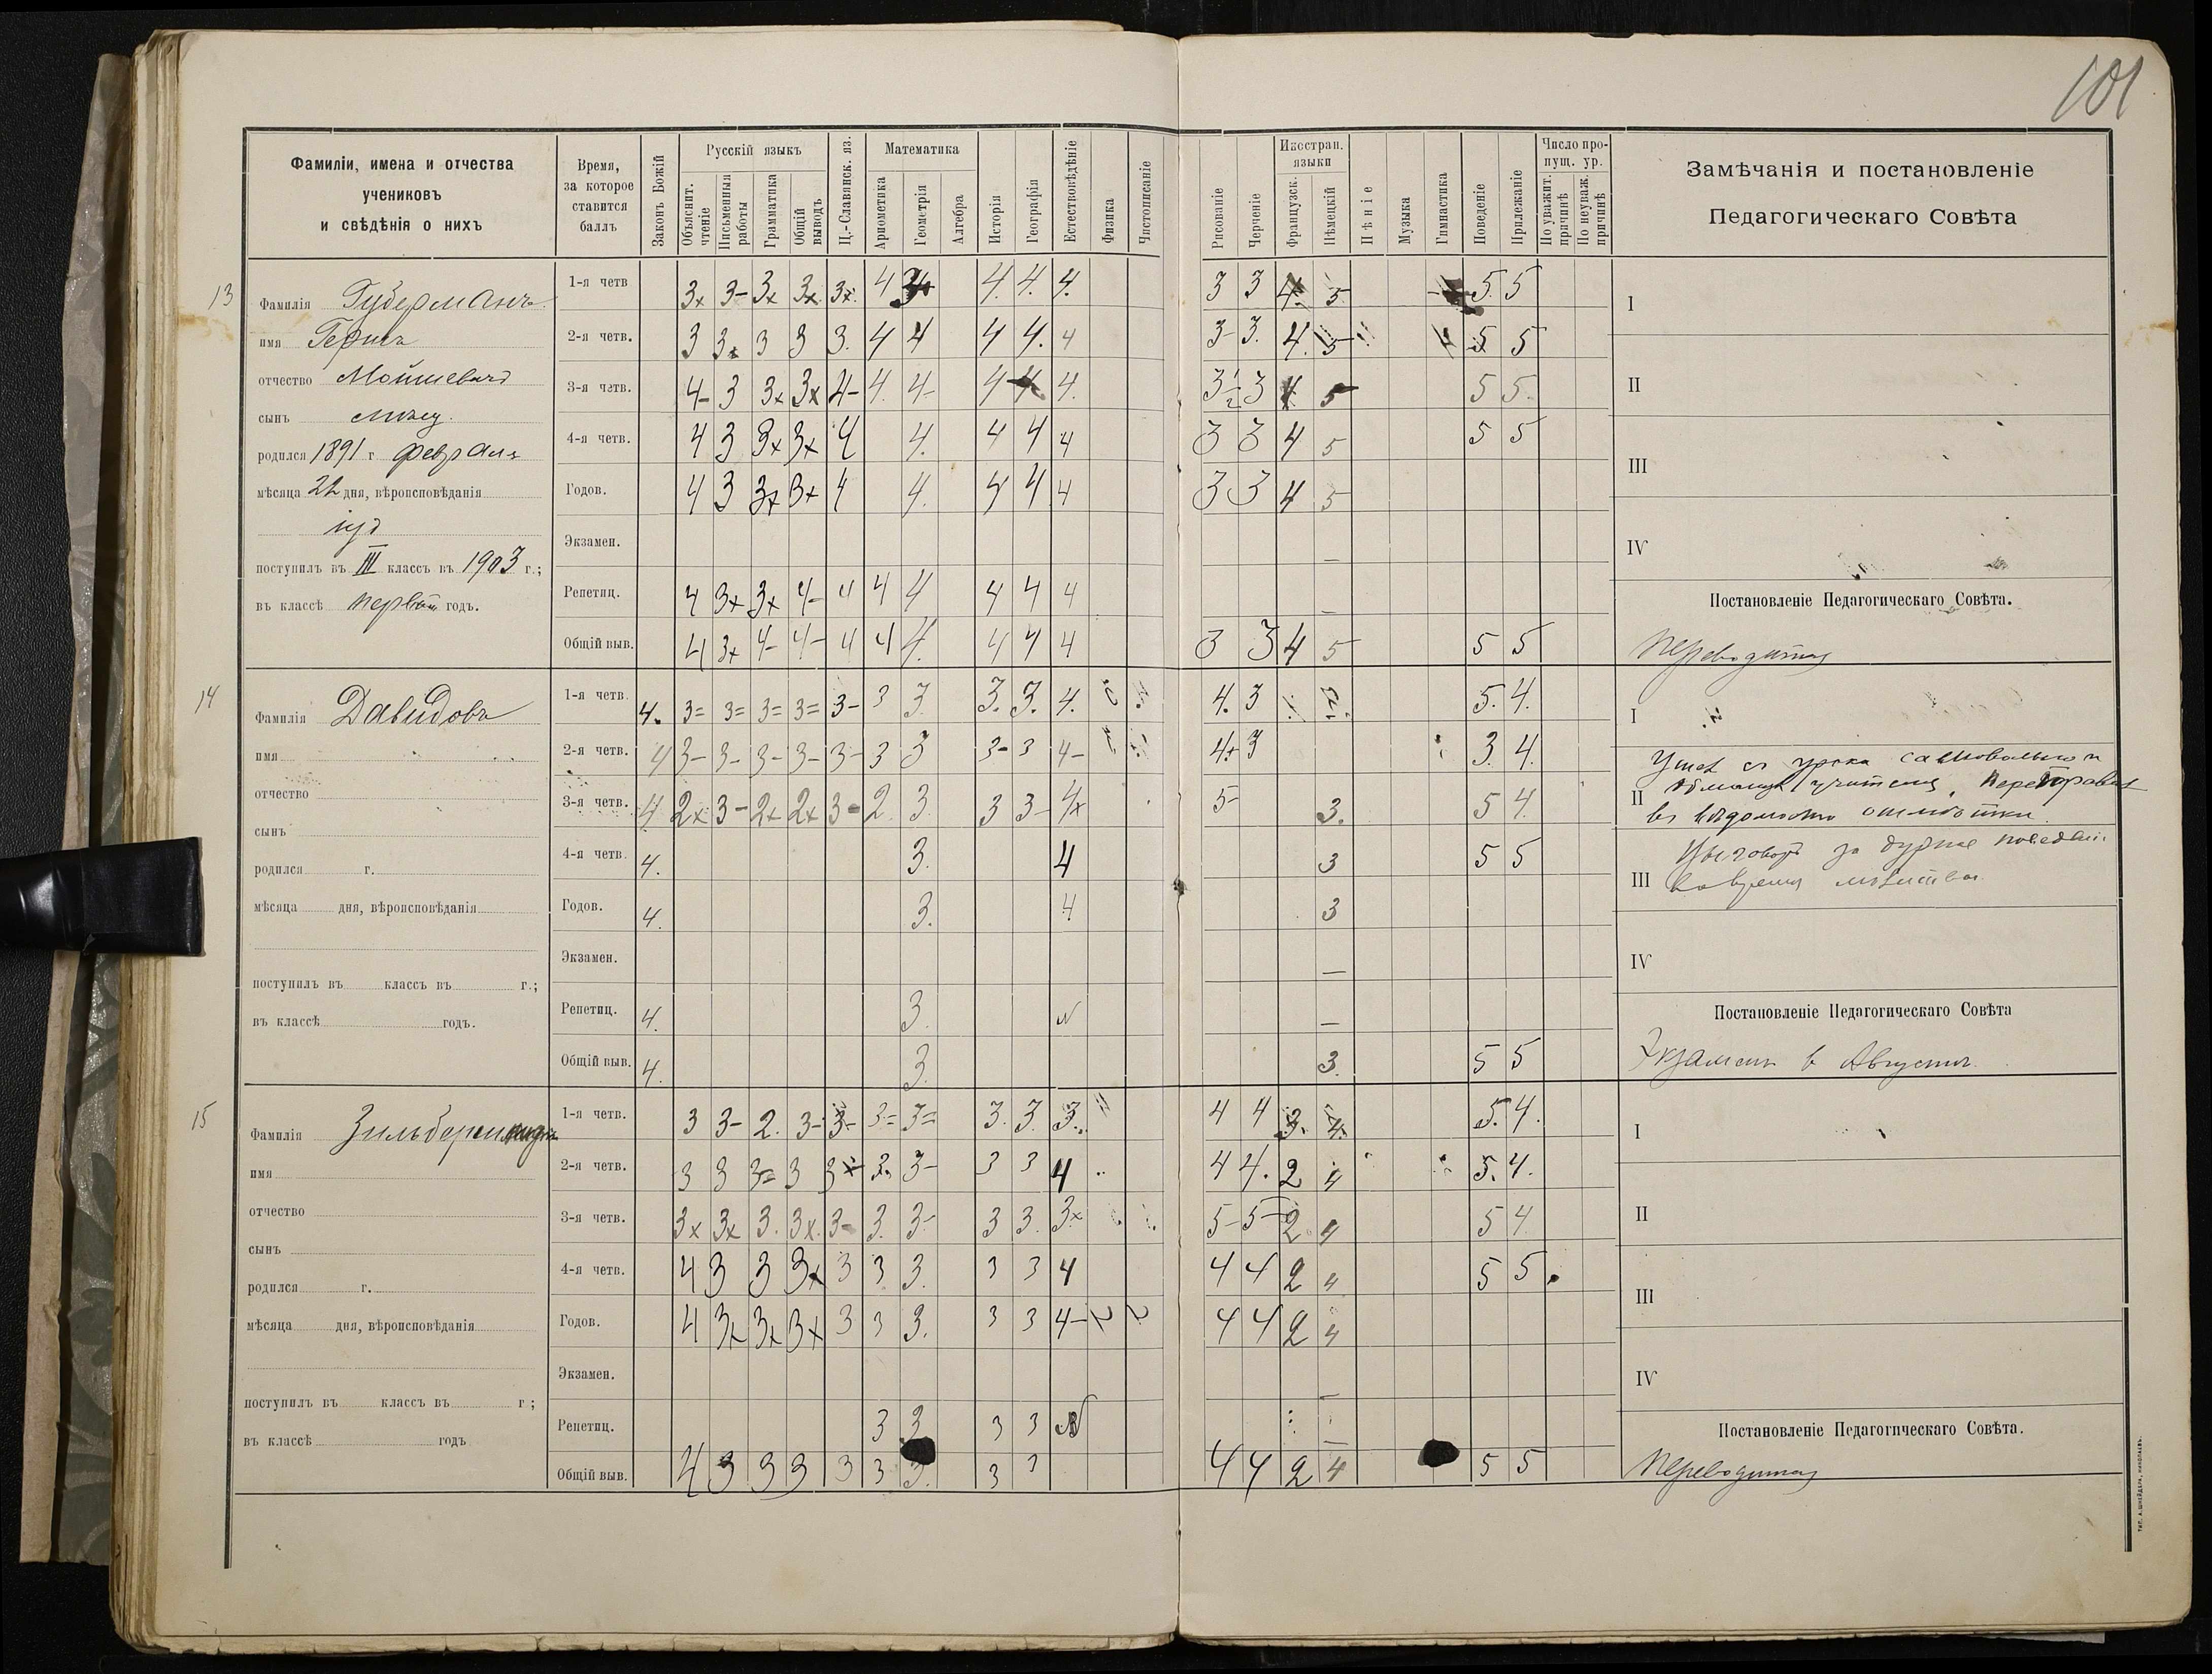 101
Фамиліи, имена и отчества
учениковъ
и свѣдѣнія о нихъ
Время,
за которое
ставится
баллъ
Законъ Божій
Русскій языкъ
Объяснит. чтеніе
Письменныя работы
Грамматика
Общій выводъ
Ц.-Славянск. яз.
Математика
Арифметика
Геометрія
Алгебра
Исторія
Географія
Естествовѣдѣніе
Физика
Чистописаніе
Рисованіе
Черченіе
Иностран. языки
Французск.
Нѣмецкій
Пѣніе
Музыка
Гимнастика
Поведеніе
Прилежаніе
Число пропущ. ур.
По уважит. причинѣ
По неуваж. причинѣ
Замѣчанія и постановленіе
Педагогическаго Совѣта
13
Фамилія Губерманъ
имя Гершъ
отчество Мойшевичъ
сынъ
родился 1891 г февраля
мѣсяца 22 дня, вѣроисповѣданія
іуд
поступилъ въ III классъ въ 1903 г.;
въ классѣ первый годъ.
1-я четв 3x 3- 3x 3x 3x 4 4. 4. 4. 3 3 4. 5 5. 5
2-я четв. 3 3x 3 3 3. 4 4 4 4. 4 3- 3. 4. 5 5 5
3-я четв. 4- 3 3x 3x 4- 4. 4- 4 4 4. 3½ 3 4 5 5 5.
4-я четв. 4 3 3x 3x 4 4. 4 4 4 3 3 4 5 5 5
Годов. 4 3 3x 3x 4 4. 4 4 4 3 3 4 5
Экзамен.
Репетиц. 4 3x 3x 4- 4 4 4 4 4 4
Общій выв. 4 3x 4- 4- 4 4 4. 4 4 4 3 3 4 5 5 5
I
II
III
IV
Постановленіе Педагогическаго Совѣта.
Переводится
14
Фамилія Давидовъ
имя
отчество
сынъ
родился г.
мѣсяца дня, вѣроисповѣданія
поступилъ въ классъ въ г.;
въ классѣ годъ.
1-я четв. 4. 3= 3= 3= 3= 3- 3 3 3. 3. 4. 4. 3 5. 4.
2-я четв. 4 3- 3- 3- 3- 3- 3 3 3- 3 4- 4+ 3 3. 4.
3-я четв. 4 2x 3- 2x 2x 3- 2 3. 3 3- 4x 5- 3. 5 4.
4-я четв. 4. 3. 4 3 5 5
Годов. 4. 3. 4 3
Экзамен.
Репетиц. 4. 3.
Общій выв. 4. 3. 3. 5 5
I
Ушел съ урока самовольно и
II обманулъ учителя, переправил
въ вѣдомости отмѣтки.
Выговоръ за дурное поведеніе
III во время молитвы
IV
Постановленіе Педагогическаго Совѣта
Экзамен в Августѣ.
15
Фамилія
имя
отчество
сынъ
родился г.
мѣсяца дня, вѣроисповѣданія
поступилъ въ классъ въ г;
въ классѣ годъ
1-я четв. 3 3- 2. 3- 3- 3= 3= 3. 3. 3. 4 4 3. 4. 5. 4.
2-я четв. 3 3 3= 3 3x 3. 3- 3 3 4 4 4. 2 4 5. 4.
3-я четв. 3x 3x 3. 3x. 3- 3. 3- 3 3. 3x 5- 5- 2 4 5 4.
4-я четв. 4 3 3 3x 3 3 3. 3 3 4 4 4 2 4 5 5
Годов. 4 3x 3x 3x 3 3 3. 3 3 4- 4 4 2 4
Экзамен.
Репетиц. 3 3 3 3
Общій выв. 4 3 3 3 3 3 3. 3 3 4 4 2 4 5 5
I
II
III
IV
Постановленіе Педагогическаго Совѣта.
Переводится
ТИП. А. ШНЕЙДЕРА, НИКОЛАЕВЪ.